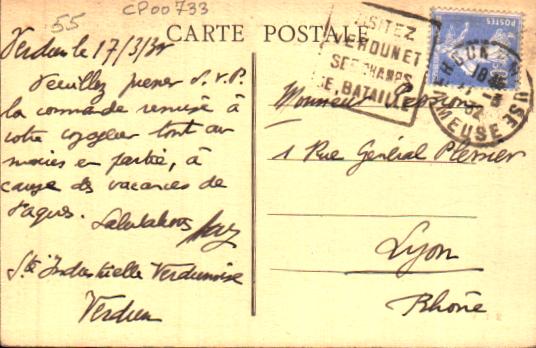 55
CP00733
CARTE POSTALE
VISITEZ
VERDUN ET
SES CHAMPS
DE BATAILLE
VERDUN
MEUSE
POSTES
Verdun le 17/3/32
Veuillez presser s.v.p.
la commande remise à
votre voyageur tout au
moins en partie, à
cause des vacances de
Paques. Salutations
Sté Industrielle Verdunoise
Verdun
Monsieur
1 Rue Général Plessier
Lyon
Rhône